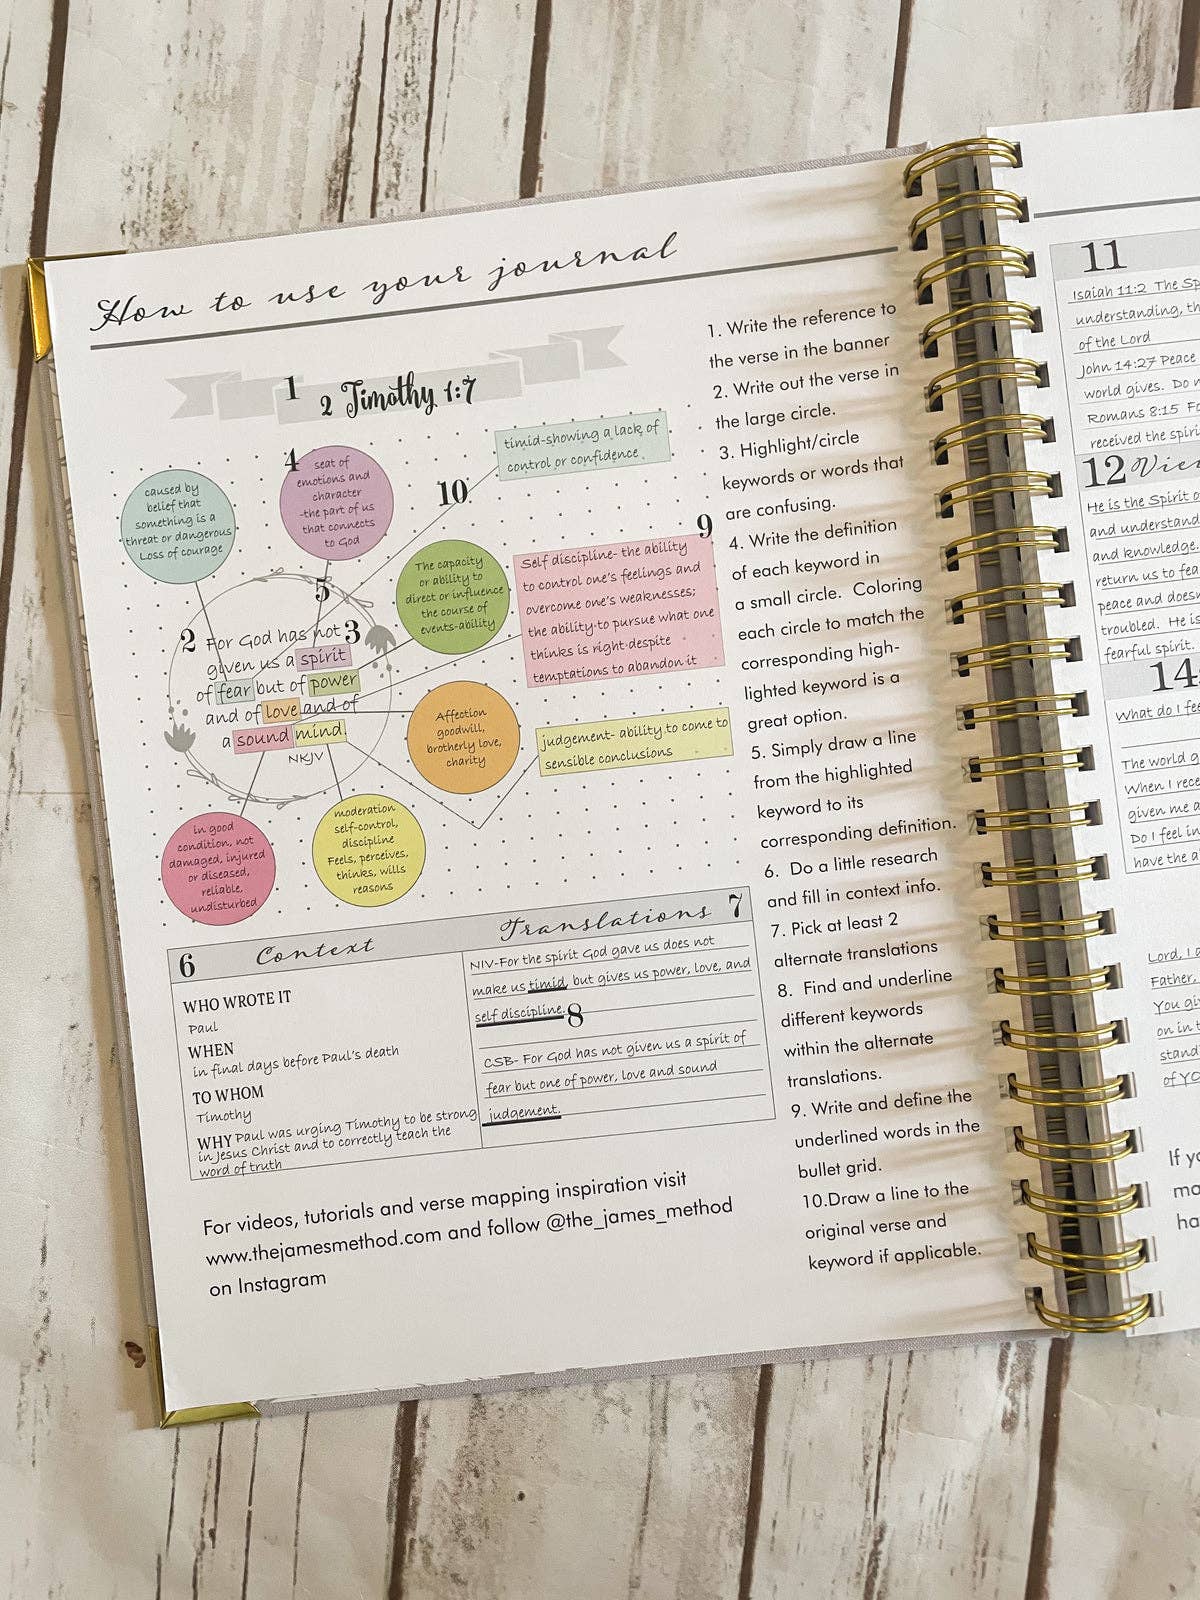 How to use your journal
1
2 Timothy 1:7
4
seat of
emotions and
character
-the part of us
that connects
to God
caused by
belief that
something is a
threat or dangerous
Loss of courage
timid-showing a lack of
control or confidence
10
9
The capacity
or ability to
direct or influence
the course of
events-ability
Self discipline- the ability
to control one's feelings and
overcome one's weaknesses;
the ability to pursue what one
thinks is right despite
temptations to abandon it
5
2 For God has not 3
given us a spirit
of fear but of power
and of love and of
a sound mind.
NKJV
Affection
goodwill,
brotherly love,
charity
judgement- ability to come to
sensible conclusions
in good
condition, not
damaged, injured
or diseased,
reliable,
undisturbed
moderation
self-control,
discipline
Feels, perceives,
thinks, wills
reasons
6 Context
WHO WROTE IT
Paul
WHEN
in final days before Paul's death
TO WHOM
Timothy
WHY Paul was urging Timothy to be strong
in Jesus Christ and to correctly teach the
word of truth
Translations 7
NIV-For the spirit God gave us does not
make us timid, but gives us power, love, and
self discipline. 8
CSB- For God has not given us a spirit of
fear but one of power, love and sound
judgement.
For videos, tutorials and verse mapping inspiration visit
www.thejamesmethod.com and follow @the_james_method
on Instagram
1. Write the reference to
the verse in the banner
2. Write out the verse in
the large circle.
3. Highlight/circle
keywords or words that
are confusing.
4. Write the definition
of each keyword in
a small circle. Coloring
each circle to match the
corresponding high-
lighted keyword is a
great option.
5. Simply draw a line
from the highlighted
keyword to its
corresponding definition.
6. Do a little research
and fill in context info.
7. Pick at least 2
alternate translations
8. Find and underline
different keywords
within the alternate
translations.
9. Write and define the
underlined words in the
bullet grid.
10.Draw a line to the
original verse and
keyword if applicable.
11
Isaiah 11:2 The Sp
understanding, th
of the Lord
John 14:27 Peace
world gives. Do n
Romans 8:15 Fo
received the spiri
12 View
He is the Spirit o
and understand
and knowledge.
return us to fea
peace and doesn
troubled. He is
fearful spirit.
14
What do I fee
The world g
When I rece
given me a
Do I feel in
have the a
Lord, I a
Father,
You giv
on in t
stand
of YO
If yo
ma
ha